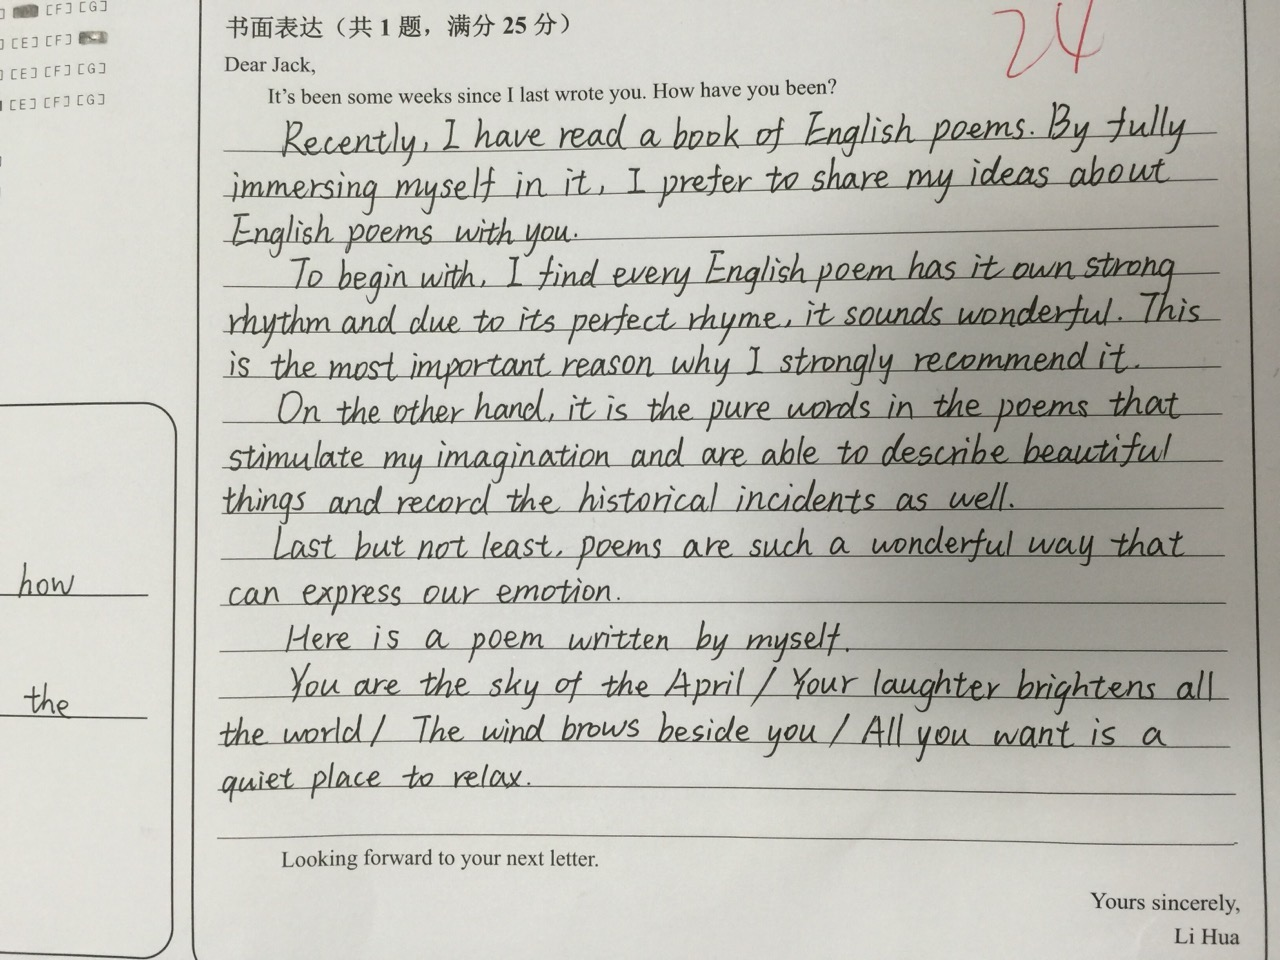 [F] [G]
[E] [F]
[E] [F] [G]
[E] [F] [G]
书面表达（共 1 题，满分 25 分）
24
Dear Jack,
It's been some weeks since I last wrote you. How have you been?
Recently, I have read a book of English poems. By fully
immersing myself in it, I prefer to share my ideas about
English poems with you.
To begin with, I find every English poem has it own strong
rhythm and due to its perfect rhyme, it sounds wonderful. This
is the most important reason why I strongly recommend it.
On the other hand, it is the pure words in the poems that
stimulate my imagination and are able to describe beautiful
things and record the historical incidents as well.
Last but not least, poems are such a wonderful way that
can express our emotion.
Here is a poem written by myself.
You are the sky of the April / Your laughter brightens all
the world / The wind brows beside you / All you want is a
quiet place to relax.
Looking forward to your next letter.
Yours sincerely,
Li Hua
how
the